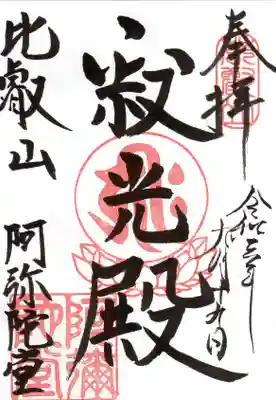 奉拝
令和三年
十九日
寂光殿
比叡山 阿弥陀堂